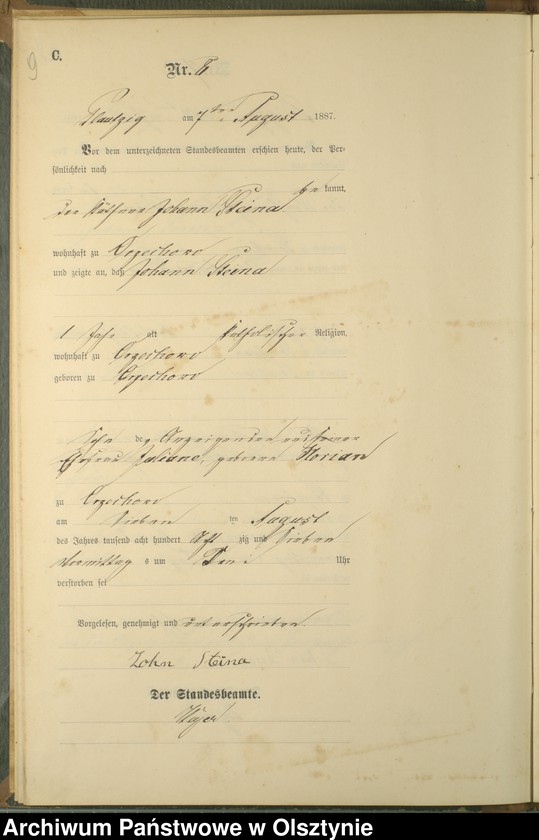 9
C.
Nr. 6
Plautzig am 7ten August 1887.
Vor dem unterzeichneten Standesbeamten erschien heute, der Per-
sönlichkeit nach
be kannt,
der Käthner Johann Steina
wohnhaft zu Orzechowo
und zeigte an, daß Johann Steina
1 Jahr alt katholischer Religion,
wohnhaft zu Orzechowo
geboren zu Orzechowo
Sohn des Anzeigenden und seiner
Ehefrau Juliane, geborene Florian
zu Orzechowo
am sieben ten August
des Jahres tausend acht hundert acht zig und sieben
Vormittag s um Uhr
verstorben sei
Vorgelesen, genehmigt und unterschrieben
John Steina
Der Standesbeamte.
Archiwum Państwowe w Olsztynie